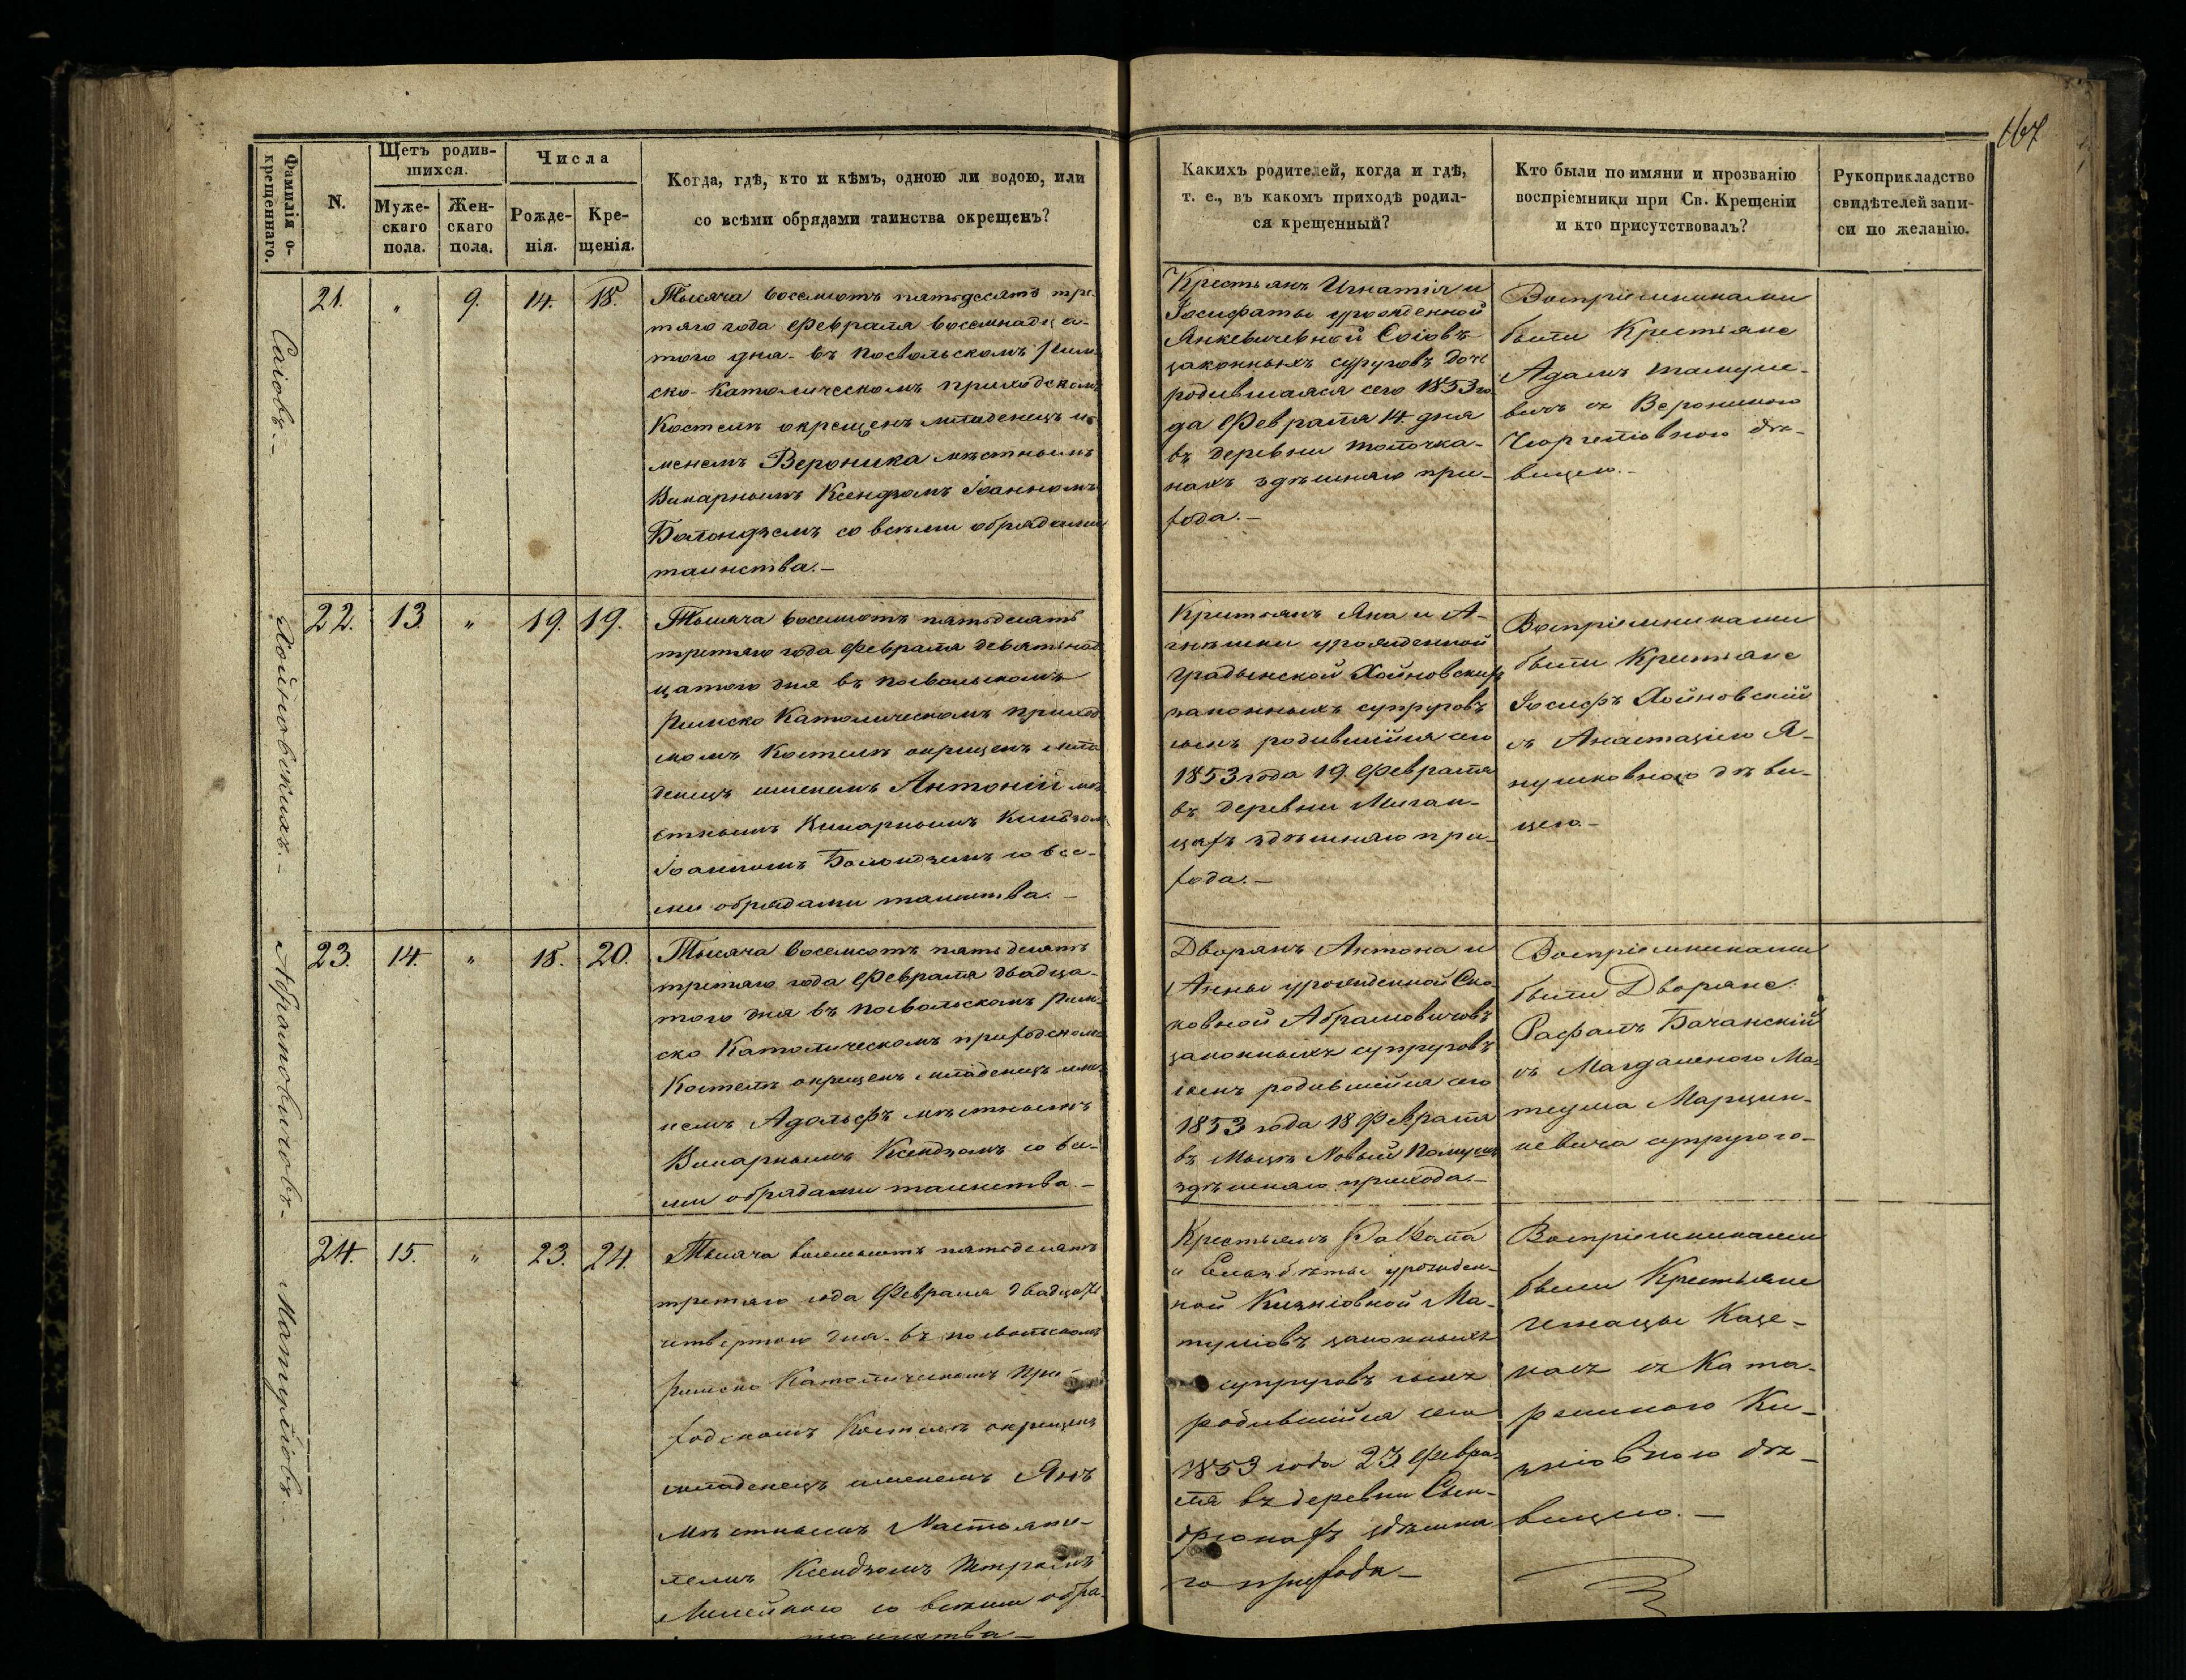 167
Фамилія о-
крещеннаго.
N.
Щетъ родив-
шихся.
Муже-
скаго
пола.
Жен-
скаго
пола.
Числа
Рожде-
нія.
Кре-
щенія.
Когда, гдѣ, кто и кѣмъ, одною ли водою, или
со всѣми обрядами таинства окрещенъ?
Какихъ родителей, когда и гдѣ,
т. е., въ какомъ приходѣ родил-
ся крещенный?
Кто были по имяни и прозванію
воспріемники при Св. Крещеніи
и кто присутствовалъ?
Рукоприкладство
свидѣтелей запи-
си по желанію.
Саіовъ.-
21. " 9. 14. 18.
Тысяча восемсотъ пятьдесятъ тре-
тяго года Февраля восемнадца-
того дня въ Посвольскомъ Рим-
ско-Католическомъ приходскомъ
Костелѣ окрещенъ младенецъ и-
менемъ Вероника мѣстнымъ
Викарнымъ Ксендзомъ Іоанномъ
со всѣми обрядами
таинства.-
Крестьянъ Игнатія и
Іосифаты урожденной
Янкевичевной Соіовъ
законныхъ супруговъ дочь
родившаяся сего 1853 го-
да Февраля 14. дня
въ деревни Толочка-
нахъ здѣшняго при-
хода.-
Воспріемниками
были Крестьяне
Адамъ Матуле-
вичъ съ Вероникою
дѣ-
вицею.-
Хойновскихъ.-
22. 13. " 19. 19.
Тысяча восемсотъ пятьдесятъ
третяго года Февраля девятьнад-
цатого дня въ Посвольскомъ
Римско Католическомъ приход-
скомъ Костелѣ окрещенъ мла-
денецъ именемъ Антоній мѣ-
стнымъ Викарнымъ Ксендзомъ
Іоанномъ со все-
ми обрядами таинства.-
Крестьянъ Яна и А-
гнѣшки урожденной
Градынской Хойновскихъ
законныхъ супруговъ
сынъ родившійся сего
1853 года 19. Февраля
въ деревни Миган-
цахъ здѣшняго при-
хода.-
Воспріемниками
были Крестьяне
Іосифъ Хойновскій
съ Анастазіею Я-
нушковною дѣви-
цею.-
Абрамовичовъ.-
23. 14. " 18. 20.
Тысяча восемсотъ пятьдесятъ
третяго года Февраля двадца-
того дня въ Посвольскомъ Рим-
ско Католическомъ приходскомъ
Костелѣ окрещенъ младенецъ име-
немъ Адольфъ мѣстнымъ
Викарнымъ Ксендзомъ со все-
ми обрядами таинства.-
Дворянъ Антона и
Анны урожденной Ско-
ковной Абрамовичовъ
законныхъ супруговъ
сынъ родившійся сего
1853 года 18 Февраля
въ Мызѣ Новый
здѣшняго прихода.-
Воспріемниками
были Дворяне:
Рафалъ Бачанскій
съ Магдаленою Ма-
теуша Марцин-
кевича супругою-
Матуліовъ.-
24. 15. " 23. 24.
Тысяча восемьсотъ пятьдесятъ
третяго года Февраля двадцать
четвертого дня въ Посвольскомъ
Римско Католическомъ При-
ходскомъ Костелѣ окрещенъ
младенецъ именемъ Янъ
Мѣстнымъ Настояте-
лемъ Ксендзомъ Петромъ
со всѣми обря-
таинства-
Крестьянъ Рафала
и Елизбѣты урожден-
ной Кизніовной Ма-
туліовъ законныхъ
супруговъ сынъ
родившійся сего
1853 года 23 Февра-
ля въ деревни
здѣшня-
го прихода-
Воспріемниками
были Крестьяне
съ Ката-
ржиною Ки-
зніовною дѣ-
вицею.-